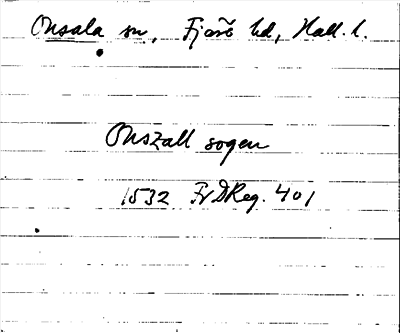 Onsala sn, Fjäre hd, Hall. l.
Onszall sogen
1532 FrDReg. 401